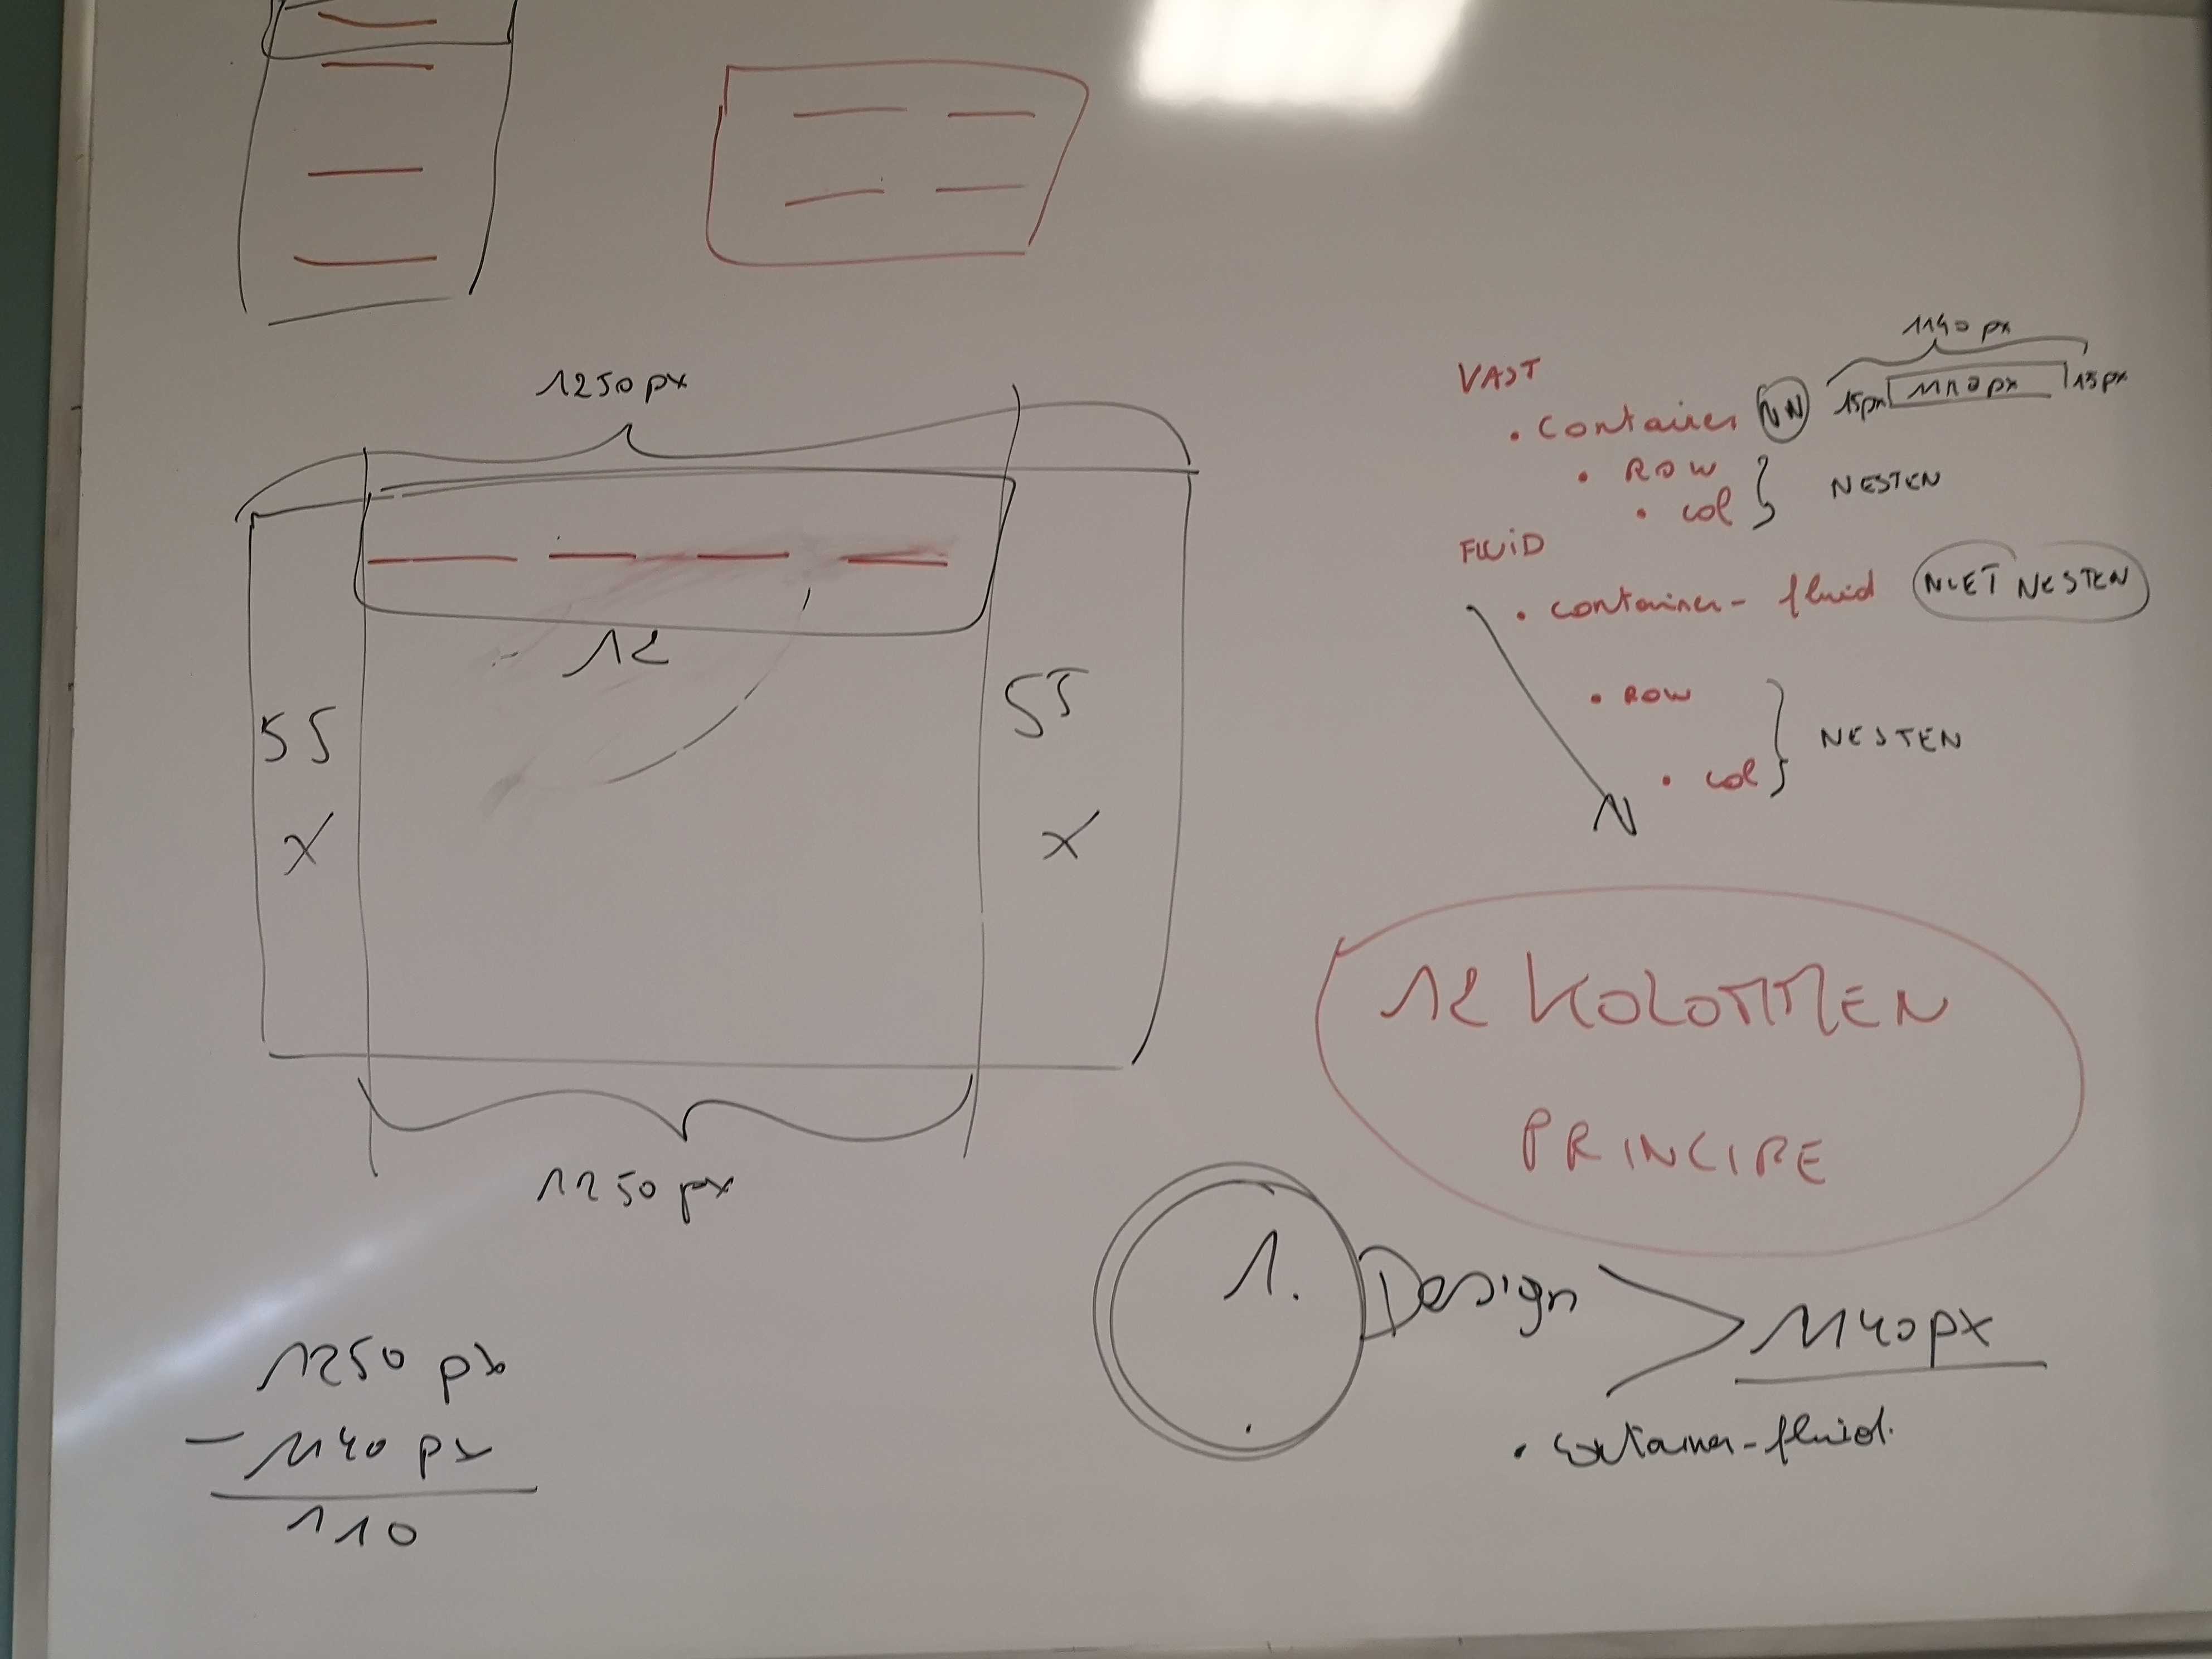 1250 px
12
55
55
X
X
1250 px
1250 px
- 1140 px
110
1140 px
VAST
• Container NN 15px 1110 px 15px
• ROW
• col
NESTEN
FLUID
• container-fluid NIET NESTEN
• ROW
• col
NESTEN
N
12 KOLOMMEN
PRINCIPE
1. Design > 1140px
• container-fluid.